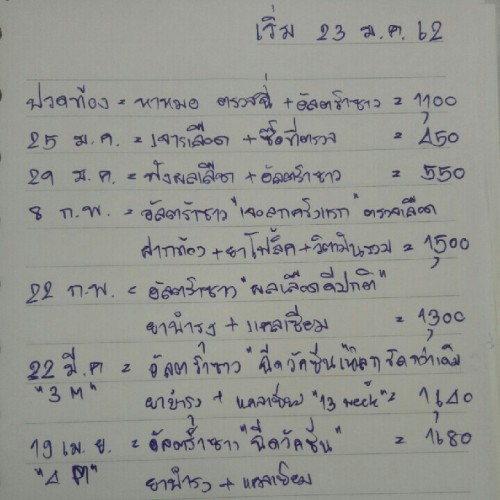 เริ่ม 23 ม.ค. 62
ปวดท้อง = หาหมอ ตรวจฉี่ + อัลตร้าซาว = 1,100
25 ม.ค. = เจาะเลือด + ซื้อที่ตรวจ = 450
29 ม.ค. = ฟังผลเลือด + อัลตร้าซาว = 550
8 ก.พ. = อัลตร้าซาว "เจอลูกครั้งแรก" ตรวจเลือด
ฝากท้อง + ยาโฟลิค + วิตามินรวม = 1,500
22 ก.พ. = อัลตร้าซาว "ผลเลือดดีปกติ"
ยาบำรุง + แคลเซียม = 1,300
22 มี.ค = อัลตร้าซาว "ฉีดวัคซีน เห็นลูกชัดกว่าเดิม
"3 M" ยาบำรุง + แคลเซียม "13 week" = 1,640
19 เม.ย. = อัลตร้าซาว "ฉีดวัคซีน" = 1,680
"4 M" ยาบำรุง + แคลเซียม